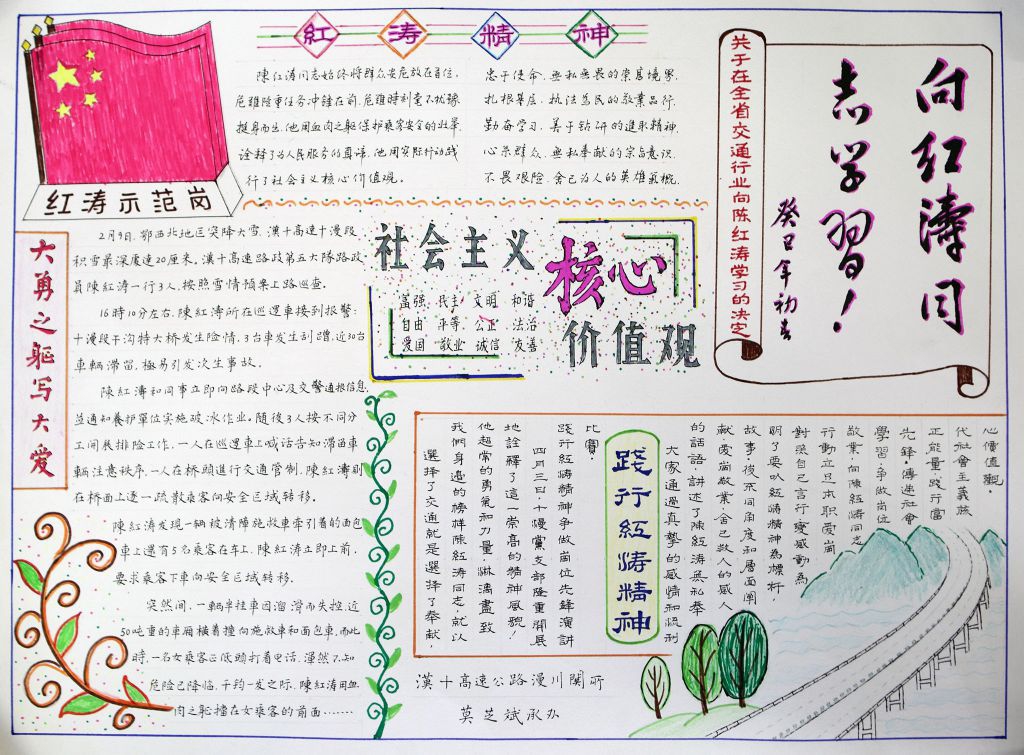 紅濤精神
陳红涛同志始终將群众安危放在首位，
危難險重任务冲鋒在前，危難時刻毫不犹豫
挺身而出，他用血肉之躯保护乘客安全的壮举，
诠释了为人民服务的真谛，他用实际行动践
行了社会主义核心价值观。
忠于使命、無私無畏的崇髙境界，
扎根基层、执法為民的敬業品行，
勤奋学习、善于钻研的進取精神，
心系群众、無私奉献的宗旨意识，
不畏艰险、舍己為人的英雄氣概。
红涛示范岗
关于在全省交通行业向陈红涛学习的决定
向红濤同
志学習！
癸巳年初春
大勇之躯写大爱
2月9日，鄂西北地区突降大雪，漢十高速十漫段
积雪最深處達20厘米，漢十高速路政第五大隊路政
員陳紅涛一行3人，按照雪情預案上路巡查。
16時10分左右，陳紅濤所在巡邏車接到报警：
十漫段干沟特大桥发生险情，3台車发生刮蹭，近30台
車輛滞留，極易引发次生事故。
陳紅濤和同事立即向路段中心及交警通报信息，
並通知養护單位实施破冰作业。随後3人按不同分
工開展排险工作，一人在巡邏車上喊话告知滞留車
輛注意秩序，一人在桥頭進行交通管制，陳紅濤則
在桥面上逐一疏散乘客向安全区域转移。
陳红涛发现一辆被清障施救車牵引着的面包
車上還有5名乘客在车上，陳红涛立即上前，
要求乘客下車向安全区域转移。
突然间，一輛半挂車因溜滑而失控，近
50吨重的車厢横着撞向施救車和面包車，而此
時，一名女乘客正低頭打着电话，渾然不知
危险已降临，千钧一发之际，陳紅濤用血
肉之躯擋在女乘客的前面……
社会主义
核心
价值观
富强 民主 文明 和谐
自由 平等 公正 法治
爱国 敬业 诚信 友善
心價值觀。
代社會主義核
正能量，踐行當
先鋒，傳遞社會
學習，争做崗位
敬業，向陳紅涛同志
行動立足本职爱崗
對照自己言行變感動為
明了要以紅涛精神為標杆，
故事，從不同角度和層面闡
献爱崗敬業，舍己救人的感人
的話語，讲述了陳紅涛無私奉
大家通過真摯的感情和流利
踐行紅涛精神
比賽。
踐行紅涛精神争做崗位先鋒演讲
四月三日，十漫黨支部隆重開展
地詮釋了這一崇高的精神風貌！
他超常的勇氣和力量淋漓盡致
我們身邊的榜样陳紅涛同志，就以
選擇了交通就是選擇了奉献，
漢十高速公路漫川関所
莫芝斌承办